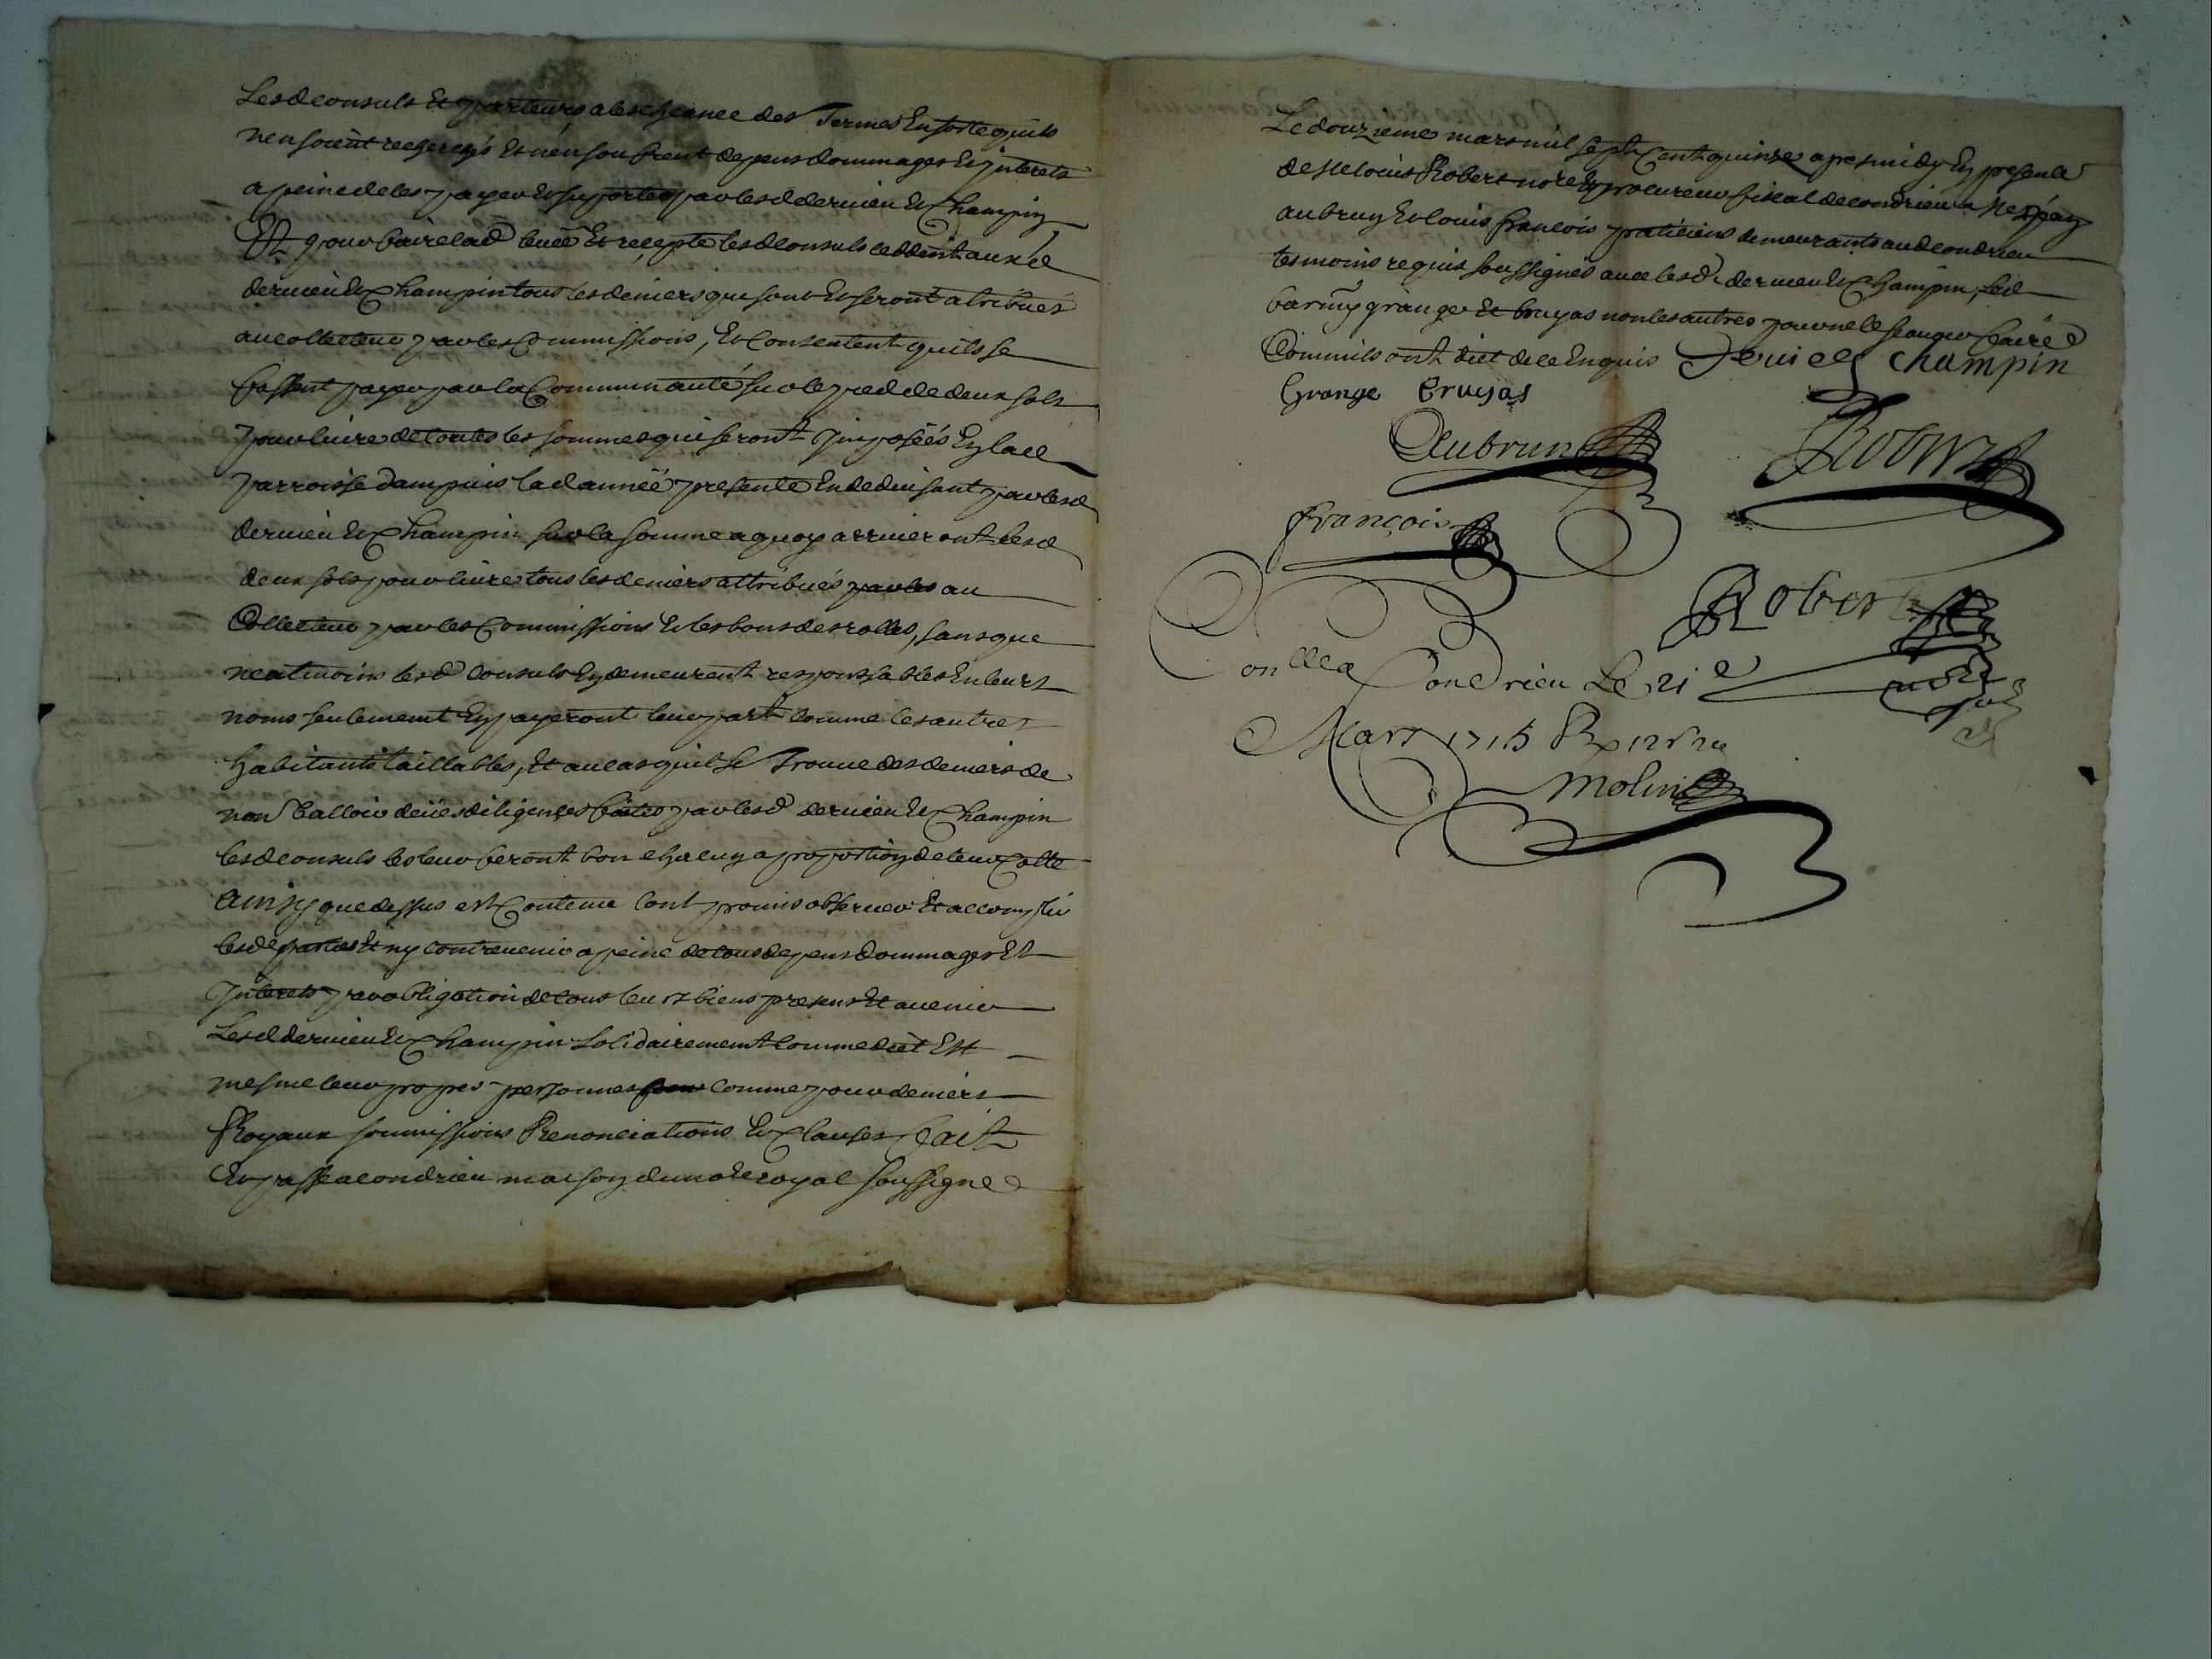 Lesd consuls Et porteurs a lescheance des Termes En sorte quils
nen soient recherchés Et nen souffrent depens dommages Et jnterets
a peine de les payer Et suporter par lesd dervieu Et Champin
Et pour faire lad levée Et recepte lesd consuls ceddent auxd
dervieu Et Champin tous les deniers qui sont Et seront atribués
au collecteur par les Commissions, Et Consentent quils se
fassent payer par la Communauté sur le pied de deux sols
pour livre de toutes les sommes qui seront Jmposées En lad
parroisse dampuis lad année presente En deduisant par lesd
dervieu Et Champin sur la somme a quoy arriveront lesd
deux sols pour livre tous les deniers attribués par les au
Collecteur par les Commissions Et les bouts des rolles, sans que
neatmoins lesd Consuls En demeurent responsables En leurs
noms seulement En payeront leur part comme les autres
habitants taillables, Et au cas quil se Trouve des deniers de
non valloir deües diligences faites par lesd dervieu Et Champin
lesd consuls les leur feront bon chacun a proportion de leur Cotte
Ainsy que dessus est Contenu lont promis observer Et accomplir
lesd parties Et ny contrevenir a peine de tous depens dommages Et
Jnterets par obligation de tous leurs biens presens Et avenir
Lesd dervieu Et Champin solidairement comme dict Est
mesme leur propres personnes pour Comme pour deniers
Royaux soumissions Renonciations Et Clauses fait
Et passé a condrieu maison du no.re royal soussigne
Le douzieme mars mil sept Cent quinze apres midy En presence
de Me louis Robert no.re Et procureur fiscal de condrieu Me
aubrun Et louis françois praticiens demeurants aud condrieu
tesmoins requis soussignés avec lesd dervieu Et Champin, led
grange Et bruyas non les autres pour ne le sçavoir faire
Comm ils ont dict de ce Enquis Dervieu Champin
Grange Bruyas
Aubrun Robert
françois
Robert
Con.llé a Condrieu Le 21e
no.re
Mars 1715 R
Molin